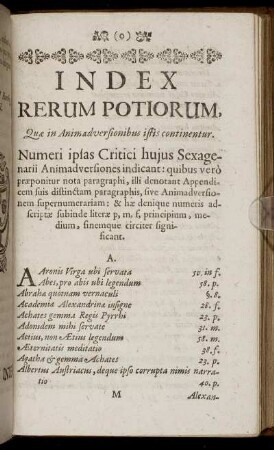 (0)
INDEX
RERUM POTIORUM,
Quæ in Animadversionibus istis continentur.
Numeri ipsas Critici hujus Sexage-
narii Animadversiones indicant: quibus verò
præponitur nota paragraphi, illi denotant Appendi-
cem suis distinctam paragraphis, sive Animadversio-
nem supernumerariam: & hæ denique numeris ad-
scriptæ subinde literæ p, m, f, principium, me-
dium, finemque circiter signi-
ficant.
A.
AAronis Virga ubi servata 50. in f.
Abes, pro abis ubi legendum 58. p.
Abraha quonam vernaculi §. 8.
Academiæ Alexandrina insigne 28. f.
Achates gemma Regis Pyrrhi 23. p.
Adonidem mihi servate 31. m.
Aetius, non Ætius legendum 58. m.
Æternitatis meditatio 38. f.
Agatha & gemma Achates 23. p.
Albertus Austriacus, deque ipso corrupta nimis narra-
tio 40. p.
M Alexan-